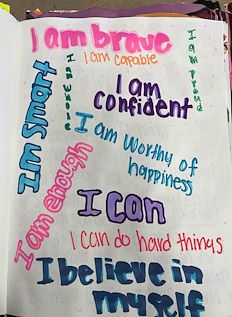 I am brave
I am capable
I am humble
I am proud
I am confident
I'm smart
I am worthy of
happiness
I am enough
I can
I can do hard things
I believe in
myself